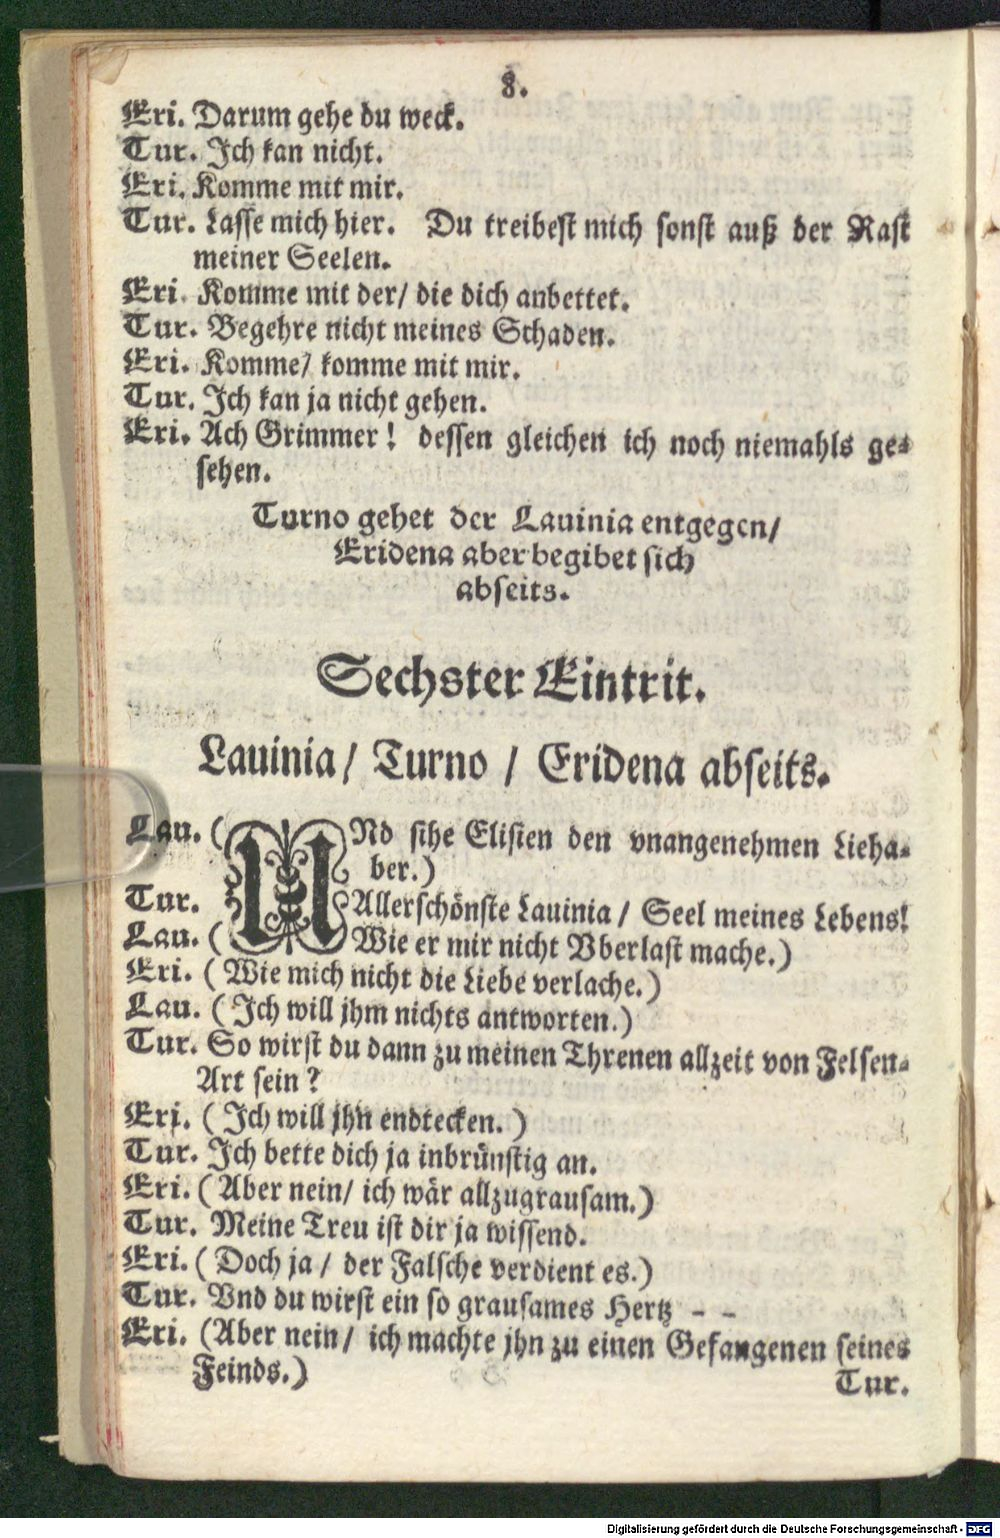 8.
Eri. Darum gehe du weck.
Tur. Ich kan nicht.
Eri. Komme mit mir.
Tur. Lasse mich hier. Du treibest mich sonst auß der Rast
meiner Seelen.
Eri. Komme mit der/ die dich anbettet.
Tur. Begehre nicht meines Schaden.
Eri. Komme/ komme mit mir.
Tur. Ich kan ja nicht gehen.
Eri. Ach Grimmer! dessen gleichen ich noch niemahls ge-
sehen.
Turno gehet der Lauinia entgegen/
Eridena aber begibet sich
abseits.
Sechster Eintrit.
Lauinia/ Turno / Eridena abseits.
Lau. (UNd sihe Elisien den vnangenehmen Lieha-
ber.)
Tur. Allerschönste Lauinia / Seel meines Lebens!
Lau. (Wie er mir nicht Vberlast mache.)
Eri. (Wie mich nicht die Liebe verlache.)
Lau. (Ich will jhm nichts antworten.)
Tur. So wirst du dann zu meinen Threnen allzeit von Felsen-
Art sein?
Eri. (Ich will jhn endtecken.)
Tur. Ich bette dich ja inbrünstig an.
Eri. (Aber nein/ ich wär allzugrausam.)
Tur. Meine Treu ist dir ja wissend.
Eri. (Doch ja / der Falsche verdient es.)
Tur. Vnd du wirst ein so grausames Hertz - -
Eri. (Aber nein/ ich machte jhn zu einen Gefangenen seines
Feinds.)
Tur.
Digitalisierung gefördert durch die Deutsche Forschungsgemeinschaft - DFG